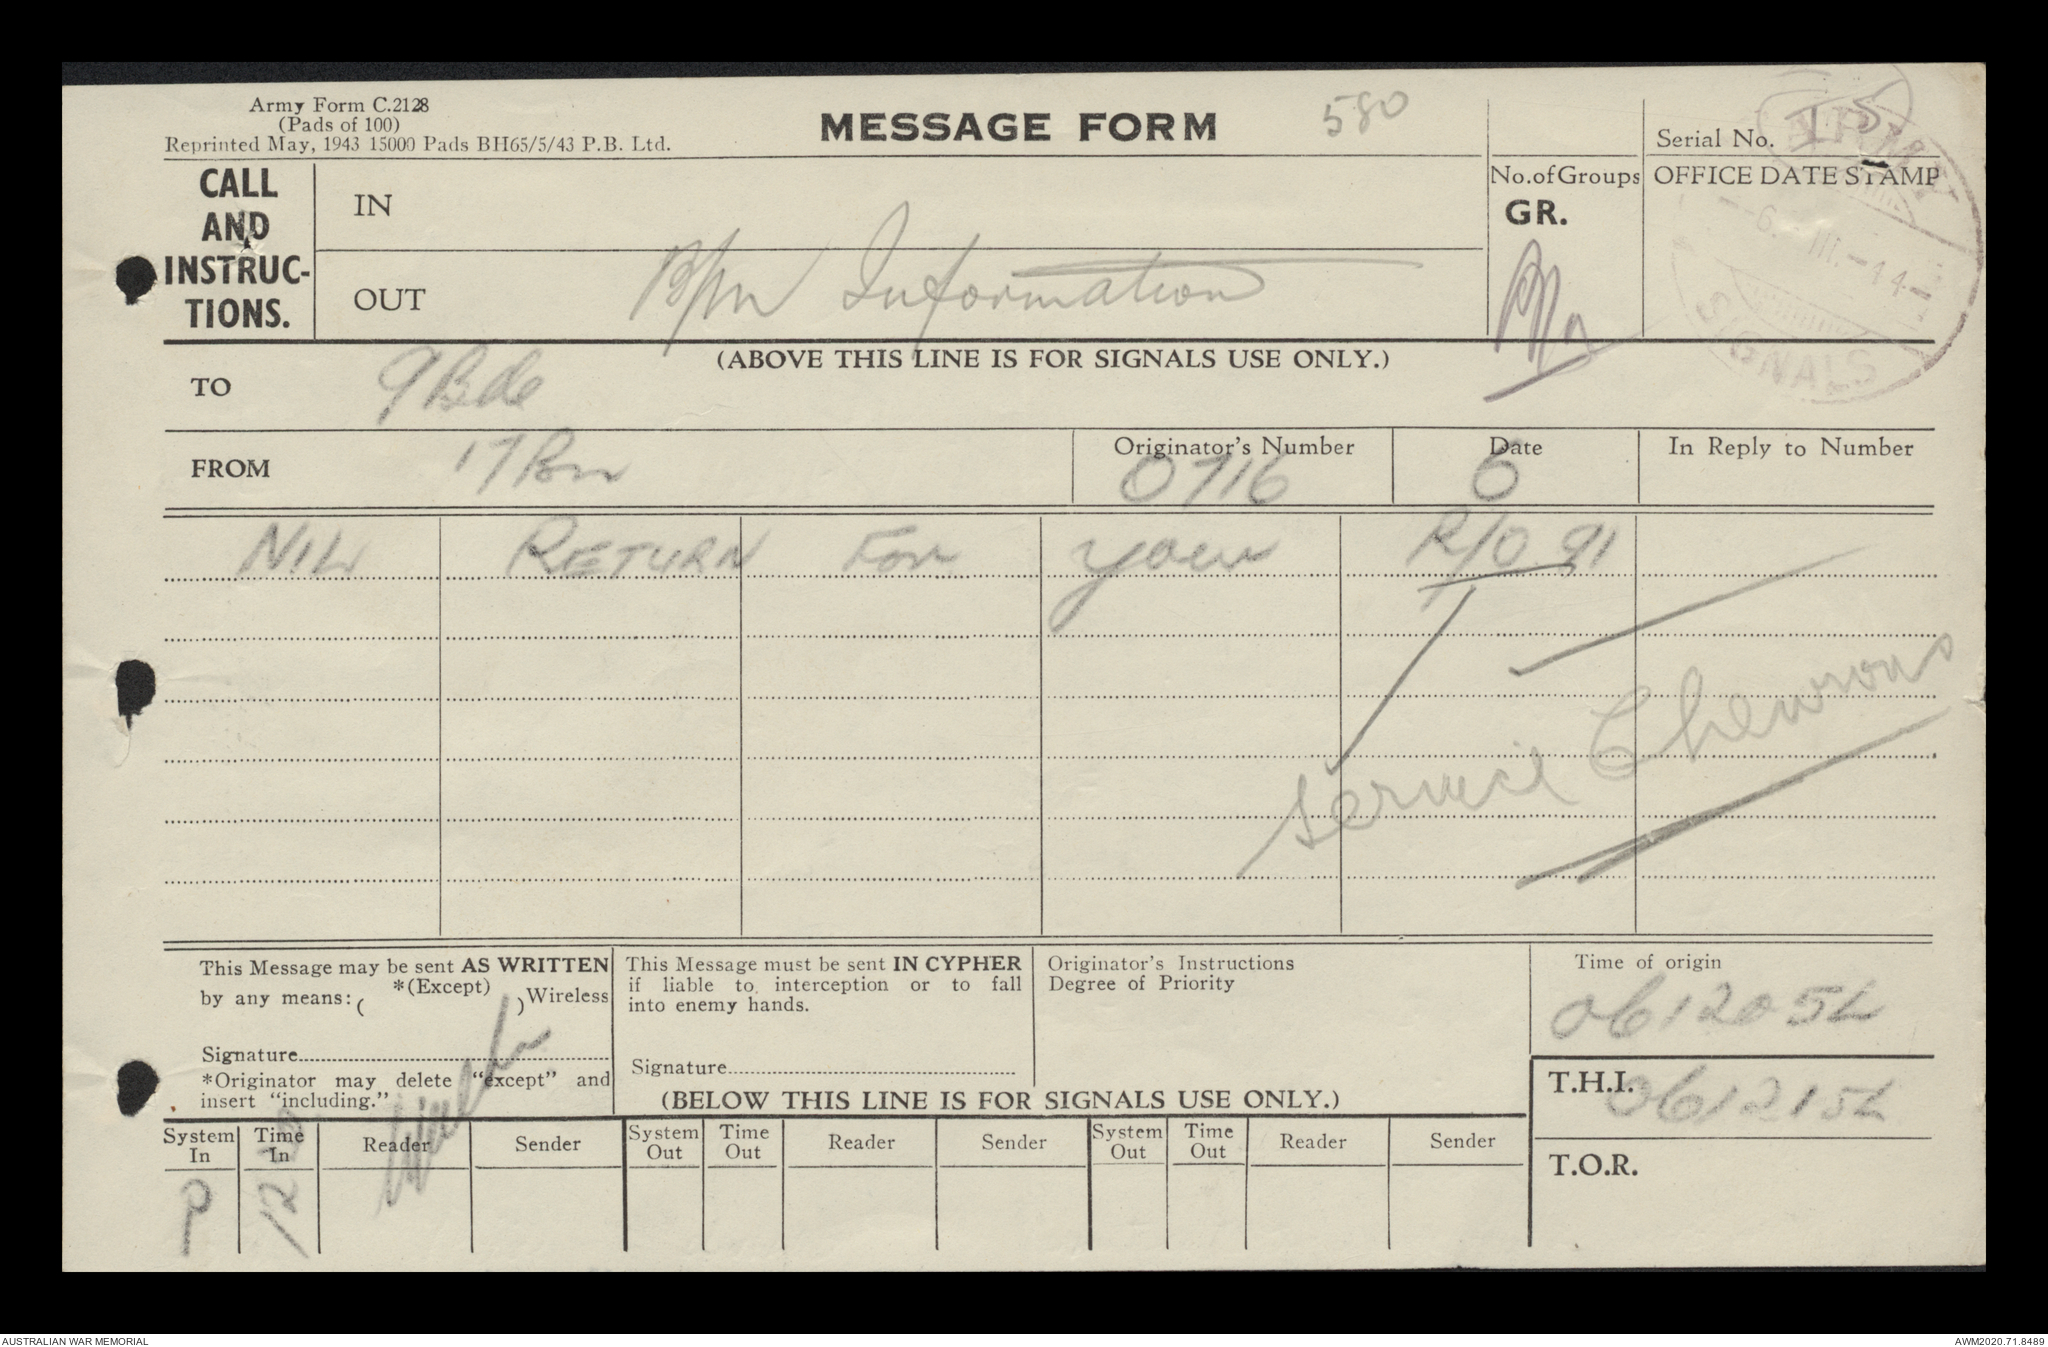 Army Form C.2128
(Pads of 100)
Reprinted May, 1943 15000 Pads BH65/5/43 P.B. Ltd.
MESSAGE FORM
580
Serial No. 15
CALL AND INSTRUC-TIONS.
IN
No. of Groups
GR.
OFFICE DATE STAMP
6. III. 44
SIGNALS
OUT
Information
(ABOVE THIS LINE IS FOR SIGNALS USE ONLY.)
TO 9 Bde
FROM 17 Bn
Originator's Number 0716
Date 6
In Reply to Number
NIL RETURN For your R/O 91
Service Chevrons
This Message may be sent AS WRITTEN
by any means: ( *(Except) ) Wireless
Signature
*Originator may delete "except" and
insert "including."
This Message must be sent IN CYPHER
if liable to interception or to fall
into enemy hands.
Signature
Originator's Instructions
Degree of Priority
Time of origin
061205L
T.H.I. 061215L
T.O.R.
(BELOW THIS LINE IS FOR SIGNALS USE ONLY.)
System In Time In Reader Sender System Out Time Out Reader Sender System Out Time Out Reader Sender
P
AUSTRALIAN WAR MEMORIAL
AWM2020.71.8489